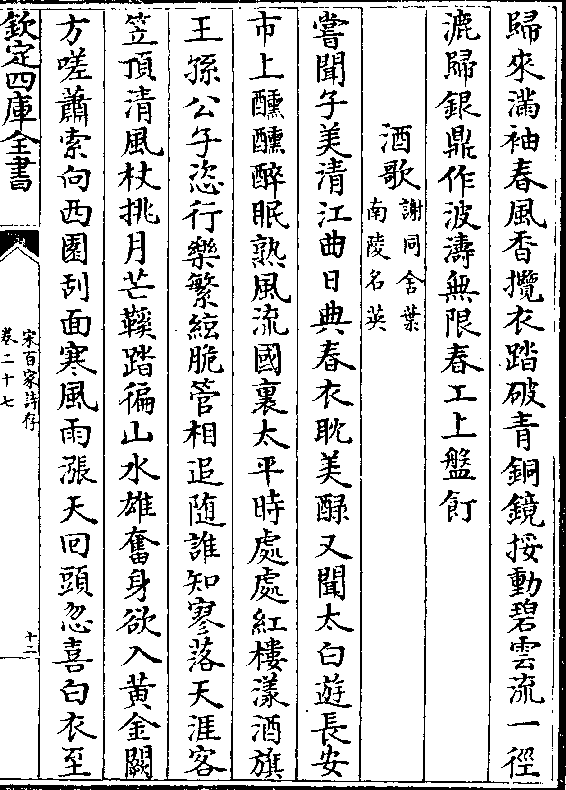 歸來滿袖春風香攬衣踏破青銅鏡挼動碧雲流一徑
漉歸銀鼎作波濤無限春工上盤飣
酒歌謝同舍葉南陵名英
嘗聞子美清江曲日典春衣耽美醁又聞太白遊長安
市上醺醺醉眠熟風流國裏太平時處處紅樓漾酒旗
王孫公子恣行樂繁絃脆管相追随誰知寥落天涯客
笠頂清風杖挑月芒鞵踏徧山水雄奮身欲入黄金闕
方嗟蕭索向西園刮面寒風雨漲天回頭忽喜白衣至
欽定四庫全書
宋百家詩存
卷二十七
十二